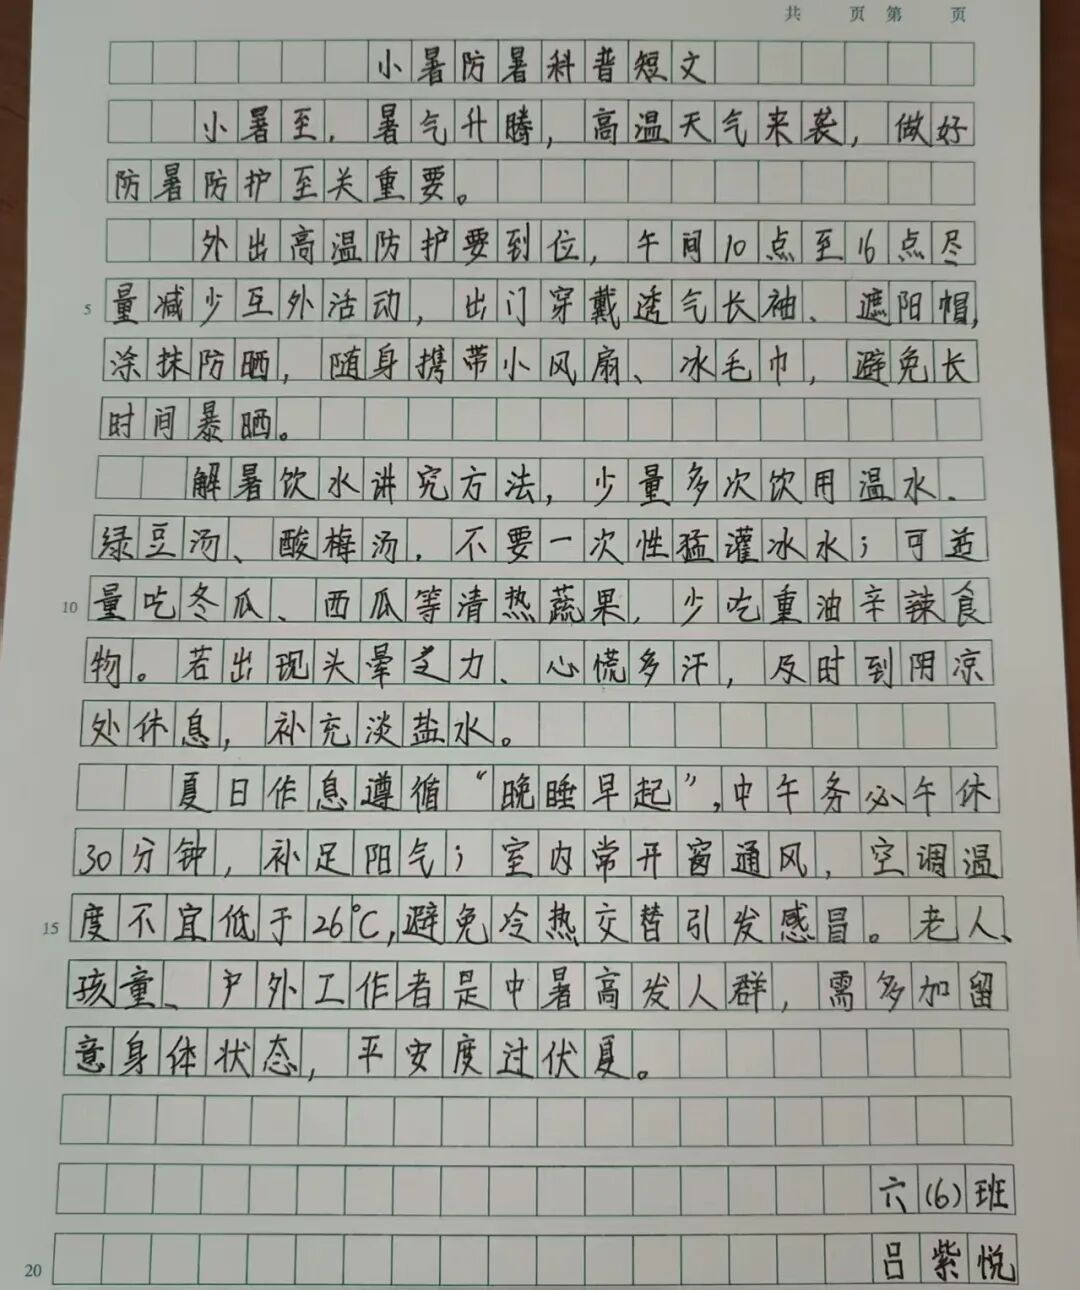 共 页 第 页
小暑防暑科普短文
小暑至，暑气升腾，高温天气来袭，做好
防暑防护至关重要。
外出高温防护要到位，午间10点至16点尽
5 量减少互外活动，出门穿戴透气长袖、遮阳帽，
涂抹防晒，随身携带小风扇、冰毛巾，避免长
时间暴晒。
解暑饮水讲究方法，少量多次饮用温水、
绿豆汤、酸梅汤，不要一次性猛灌冰水；可适
10 量吃冬瓜、西瓜等清热蔬果，少吃重油辛辣食
物。若出现头晕乏力、心慌多汗，及时到阴凉
处休息，补充淡盐水。
夏日作息遵循“晚睡早起”，中午务必午休
30分钟，补足阳气；室内常开窗通风，空调温
15 度不宜低于26℃，避免冷热交替引发感冒。老人、
孩童、户外工作者是中暑高发人群，需多加留
意身体状态，平安度过伏夏。
六(6)班
20 吕紫悦